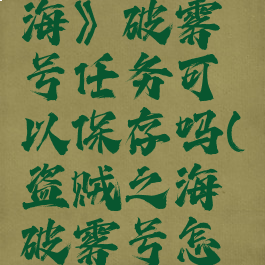 海》破雾
号任务可
以保存吗(
盗贼之海
破雾号怎